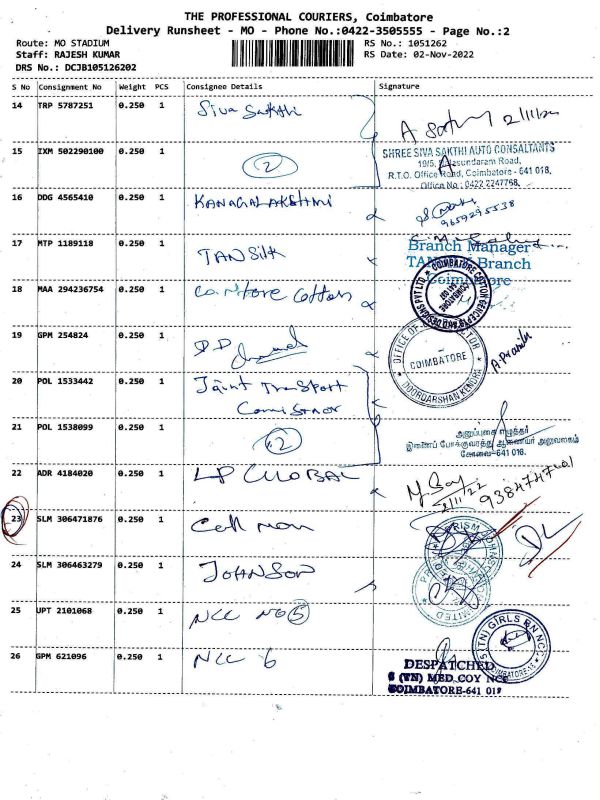 THE PROFESSIONAL COURIERS, Coimbatore
Delivery Runsheet - MO - Phone No.:0422-3505555 - Page No.:2
Route: MO STADIUM
RS No.: 1051262
Staff: RAJESH KUMAR
RS Date: 02-Nov-2022
DRS No.: DCJB105126202
S No Consignment No Weight PCS Consignee Details Signature
14 TRP 5787251 0.250 1 Siva Sakthi
2/11/22
15 IXM 502290100 0.250 1 2
SHREE SIVA SAKTHI AUTO CONSALTANTS
19/5, Balasundaram Road,
R.T.O. Office Road, Coimbatore - 641 018.
Office No : 0422 2247768.
16 DDG 4565410 0.250 1 KANAGALAKSHMI
9659295538
17 MTP 1189118 0.250 1 TAN Silk
Branch Manager
Branch
Coimbatore
18 MAA 294236754 0.250 1 Cotton
COIMBATORE COTTON
19 GPM 254824 0.250 1 D.D
OFFICE OF
COIMBATORE
DOORDARSHAN KENDRA
20 POL 1533442 0.250 1 Joint Transport
21 POL 1538099 0.250 1 2
அனுப்புகை எழுத்தர்
இணைப் போக்குவரத்து ஆணையர் அலுவலகம்
கோவை-641 018.
22 ADR 4184020 0.250 1 LP GLOBAL
2/11/22
23 SLM 306471876 0.250 1 Cell mon
24 SLM 306463279 0.250 1 JOHNSON
25 UPT 2101068 0.250 1 NCC NO 5
5 (TN) GIRLS BN NCC
COIMBATORE-18
26 GPM 621096 0.250 1 NCC 6
DESPATCHED
6 (TN) MED COY NCC
COIMBATORE-641 018